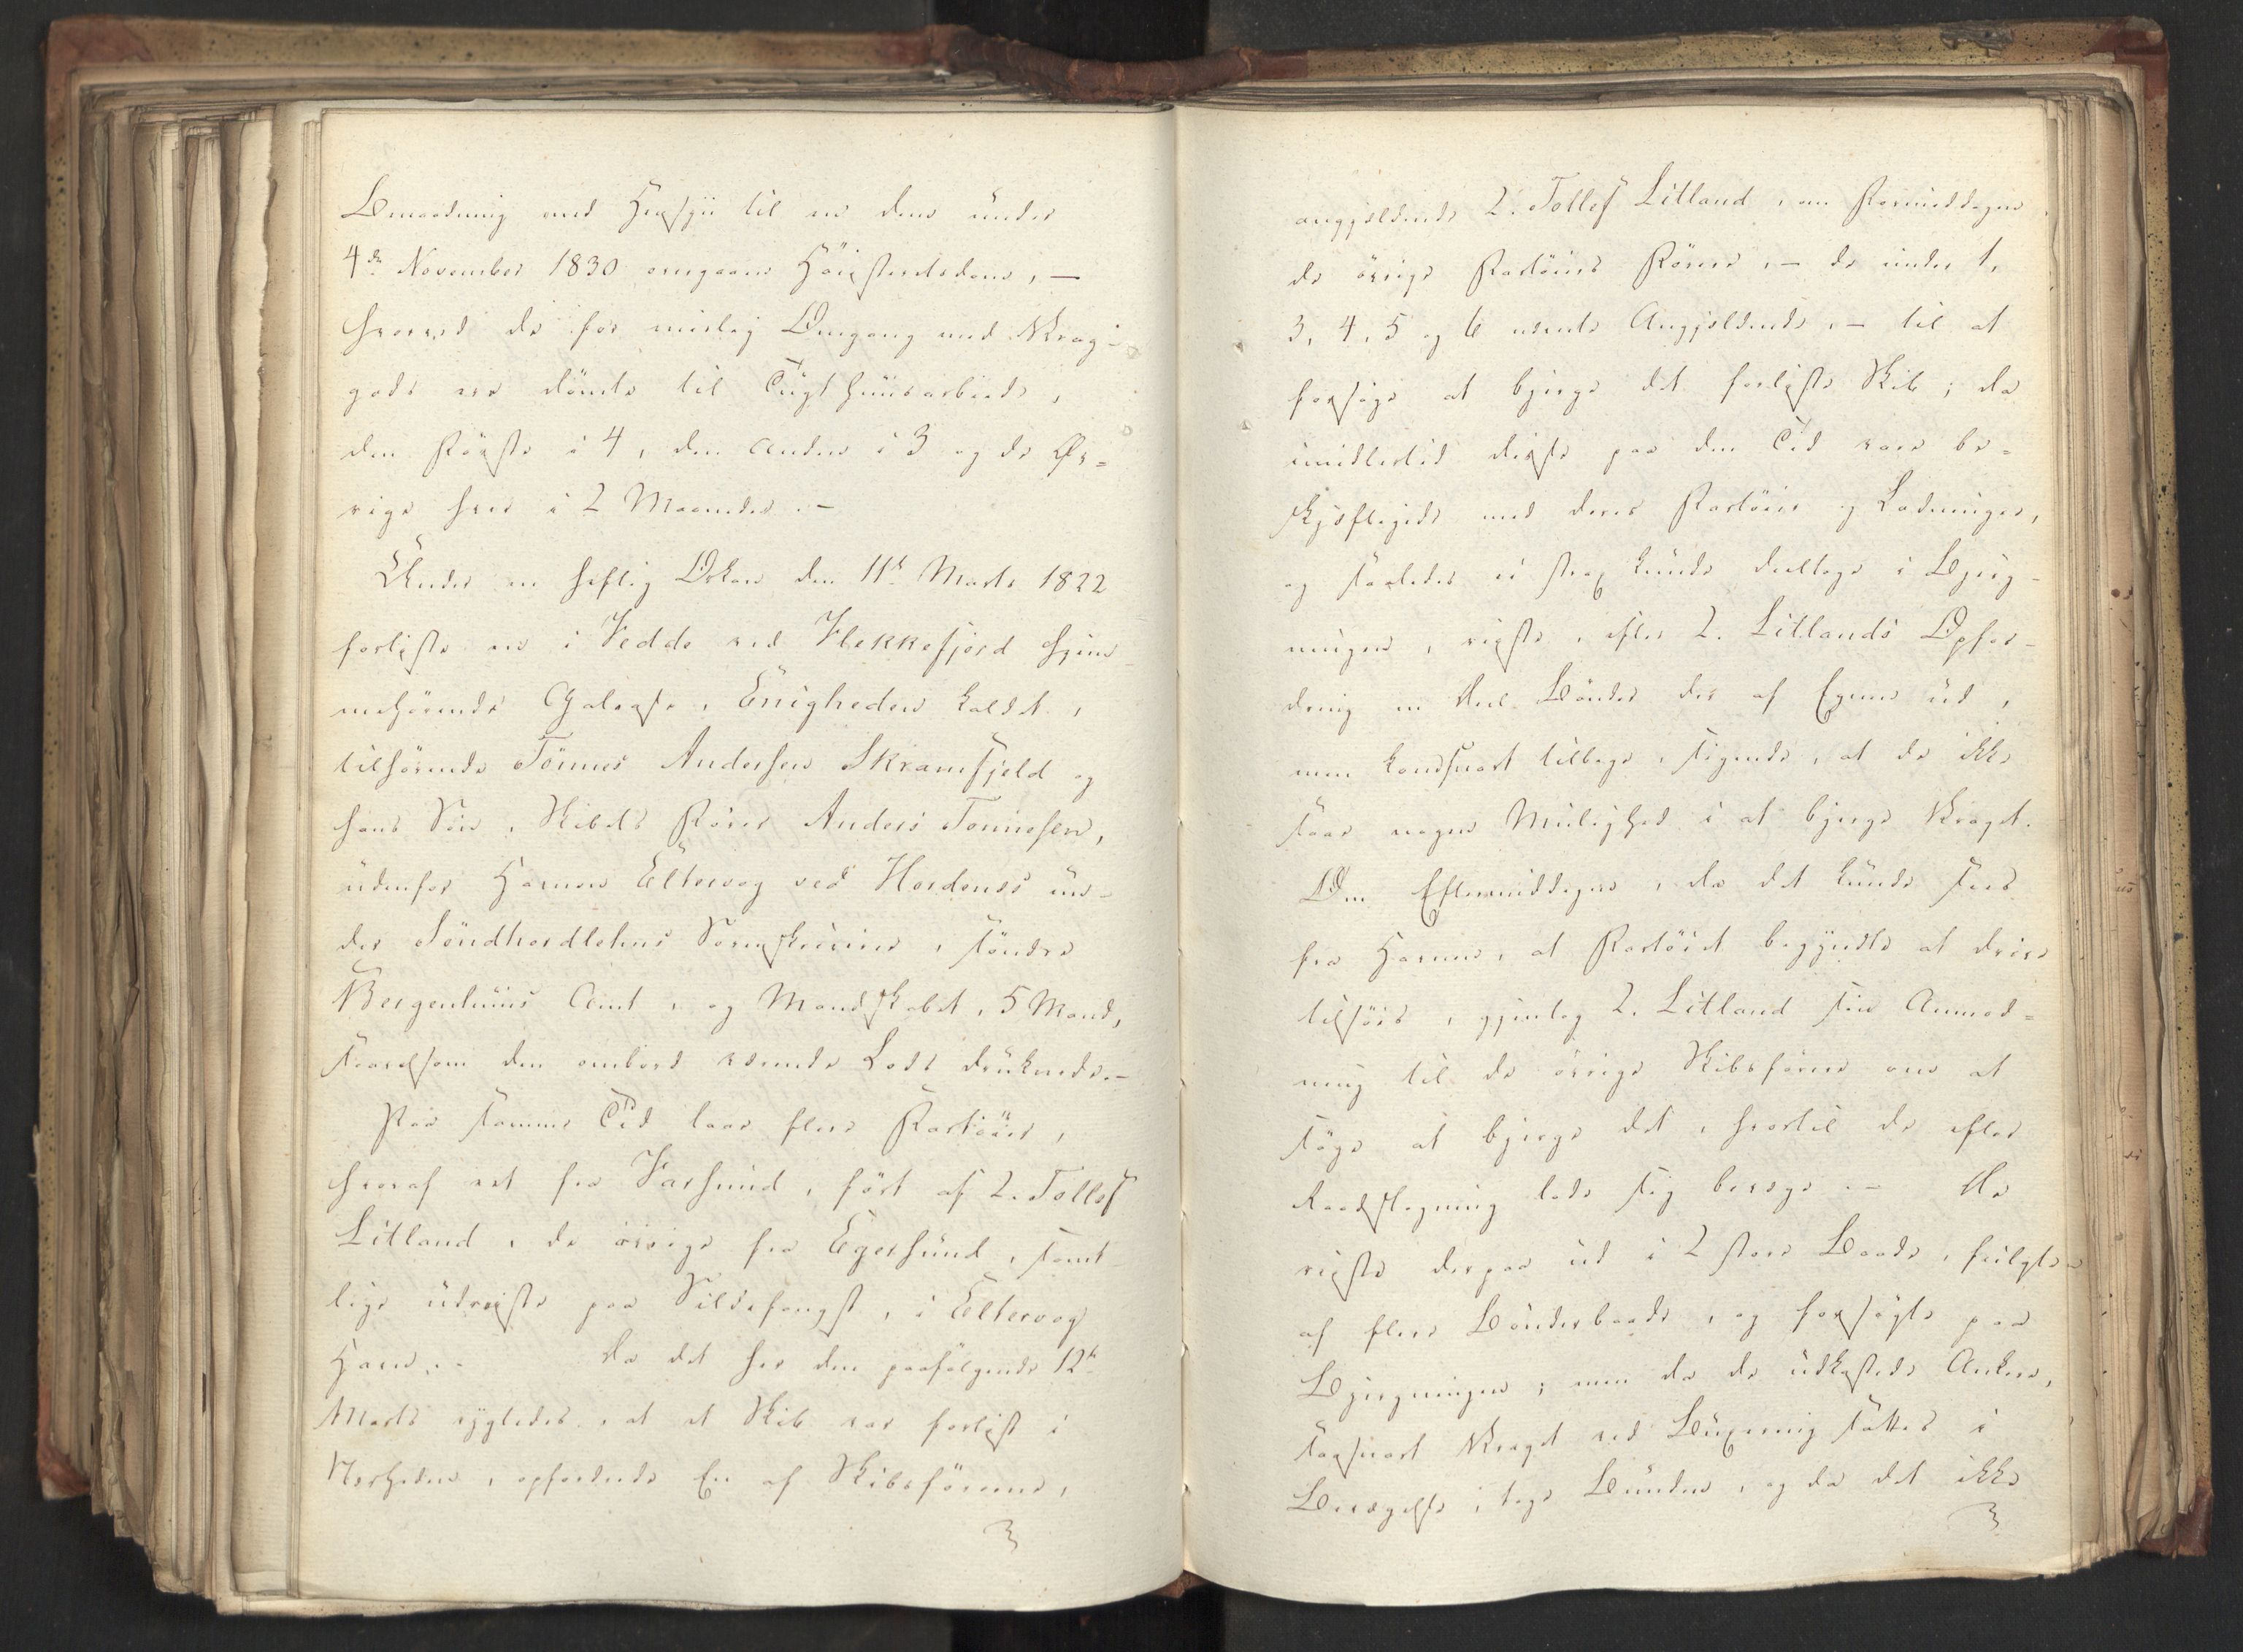 Benaadning med Hensyn til en dem under
4de November 1830 overgaaen Höiesteretsdom, —
hvorved de for ulovlig Omgang med Vrag-
gods ere dömte til Tugthuusarbeide,
den Förste i 4, den Anden i 3 og de Øv=
rige hver i 2 Maaneder. —
Under en heftig Orkan den 11te Marts 1822
forliste en i Fedde ved Flekkefjord hjem-
mehörende Galease, Enigheden kaldet,
tilhörende Tönnes Andersen Skramfjeld og
hans Sön, Skibets Förer Anders Tönnesen,
udenfor Havnen Eltervog ved Hordenæs un-
der Söndhordlehns Sorenskriverie, söndre
Bergenhuus Amt, og Mandskabet, 5 Mand,
saavelsom den ombord værende Lods druknede. —
Paa samme Tid laae flere Fartöier,
hvoraf eet fra Farsund, fört af 2. Tollef
Litland, de övrige fra Egersund, samt-
lige udreiste paa Sildefangst, i Eltervog
Havn. — Da det her den paafölgende 12te
Marts rygtedes, at et Skib var forliist i
Nærheden, opfordrede En af Skibsförerne,
angjeldende 2. Tollef Litland, om Formiddagen
de övrige Fartöiers Förere, — de under 1,
3, 4, 5 og 6 nævnte Angjeldende, — til at
forsöge at bjerge det forliste Skib; da
imidlertid disse paa den Tid vare be=
skjeftigede med deres Fartöier og Ladninger,
og saaledes ei strax kunde deeltage i Bjerg-
ningen, reiste, efter 2. Litlands Opfor-
dring en Deel Bönder der af Egnen ud,
men kom snart tilbage, sigende, at de ikke
saae nogen Mulighed i at bjerge Vraget.
Om Eftermiddagen, da det kunde sees
fra Havnen, at Fartöiet begyndte at drive
tilsöes, gjentog 2. Litland sin Anmod=
ning til de övrige Skibsförere om at
söge at bjerge det, hvortil de efter
Raadslagning lode sig bevæge. — De
reiste derpaa ud i 2 store Baade, fulgte
af flere Bönderbaade, og forsögte paa
Bjergningen; men da de udkastede Ankere,
saasnart Vraget ved Buxering sattes i
Bevægelse, toge Bunden, og da det ikke